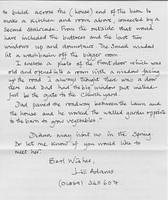 to build across the (house) end of the barn to
make a kitchen and room above, connected by a
second staircase. From the outside that would
have included the buttress and the last two
windows up and downstairs. The small window
let a washbasin off the bigger one.
I enclose a photo of the front door which was
old and opened into a room with a window facing
up the road. I always thought there was a door
there and Dad had the big window put
just be the gate to the Church yard.
Dad paved the roadway between the lawn and
the house and he created the walled garden opposite
to the barn to grow vegetables.
Diana may visit us in the Spring.
Do let me know if you would like to
meet her.
Best Wishes,
Jill Adams